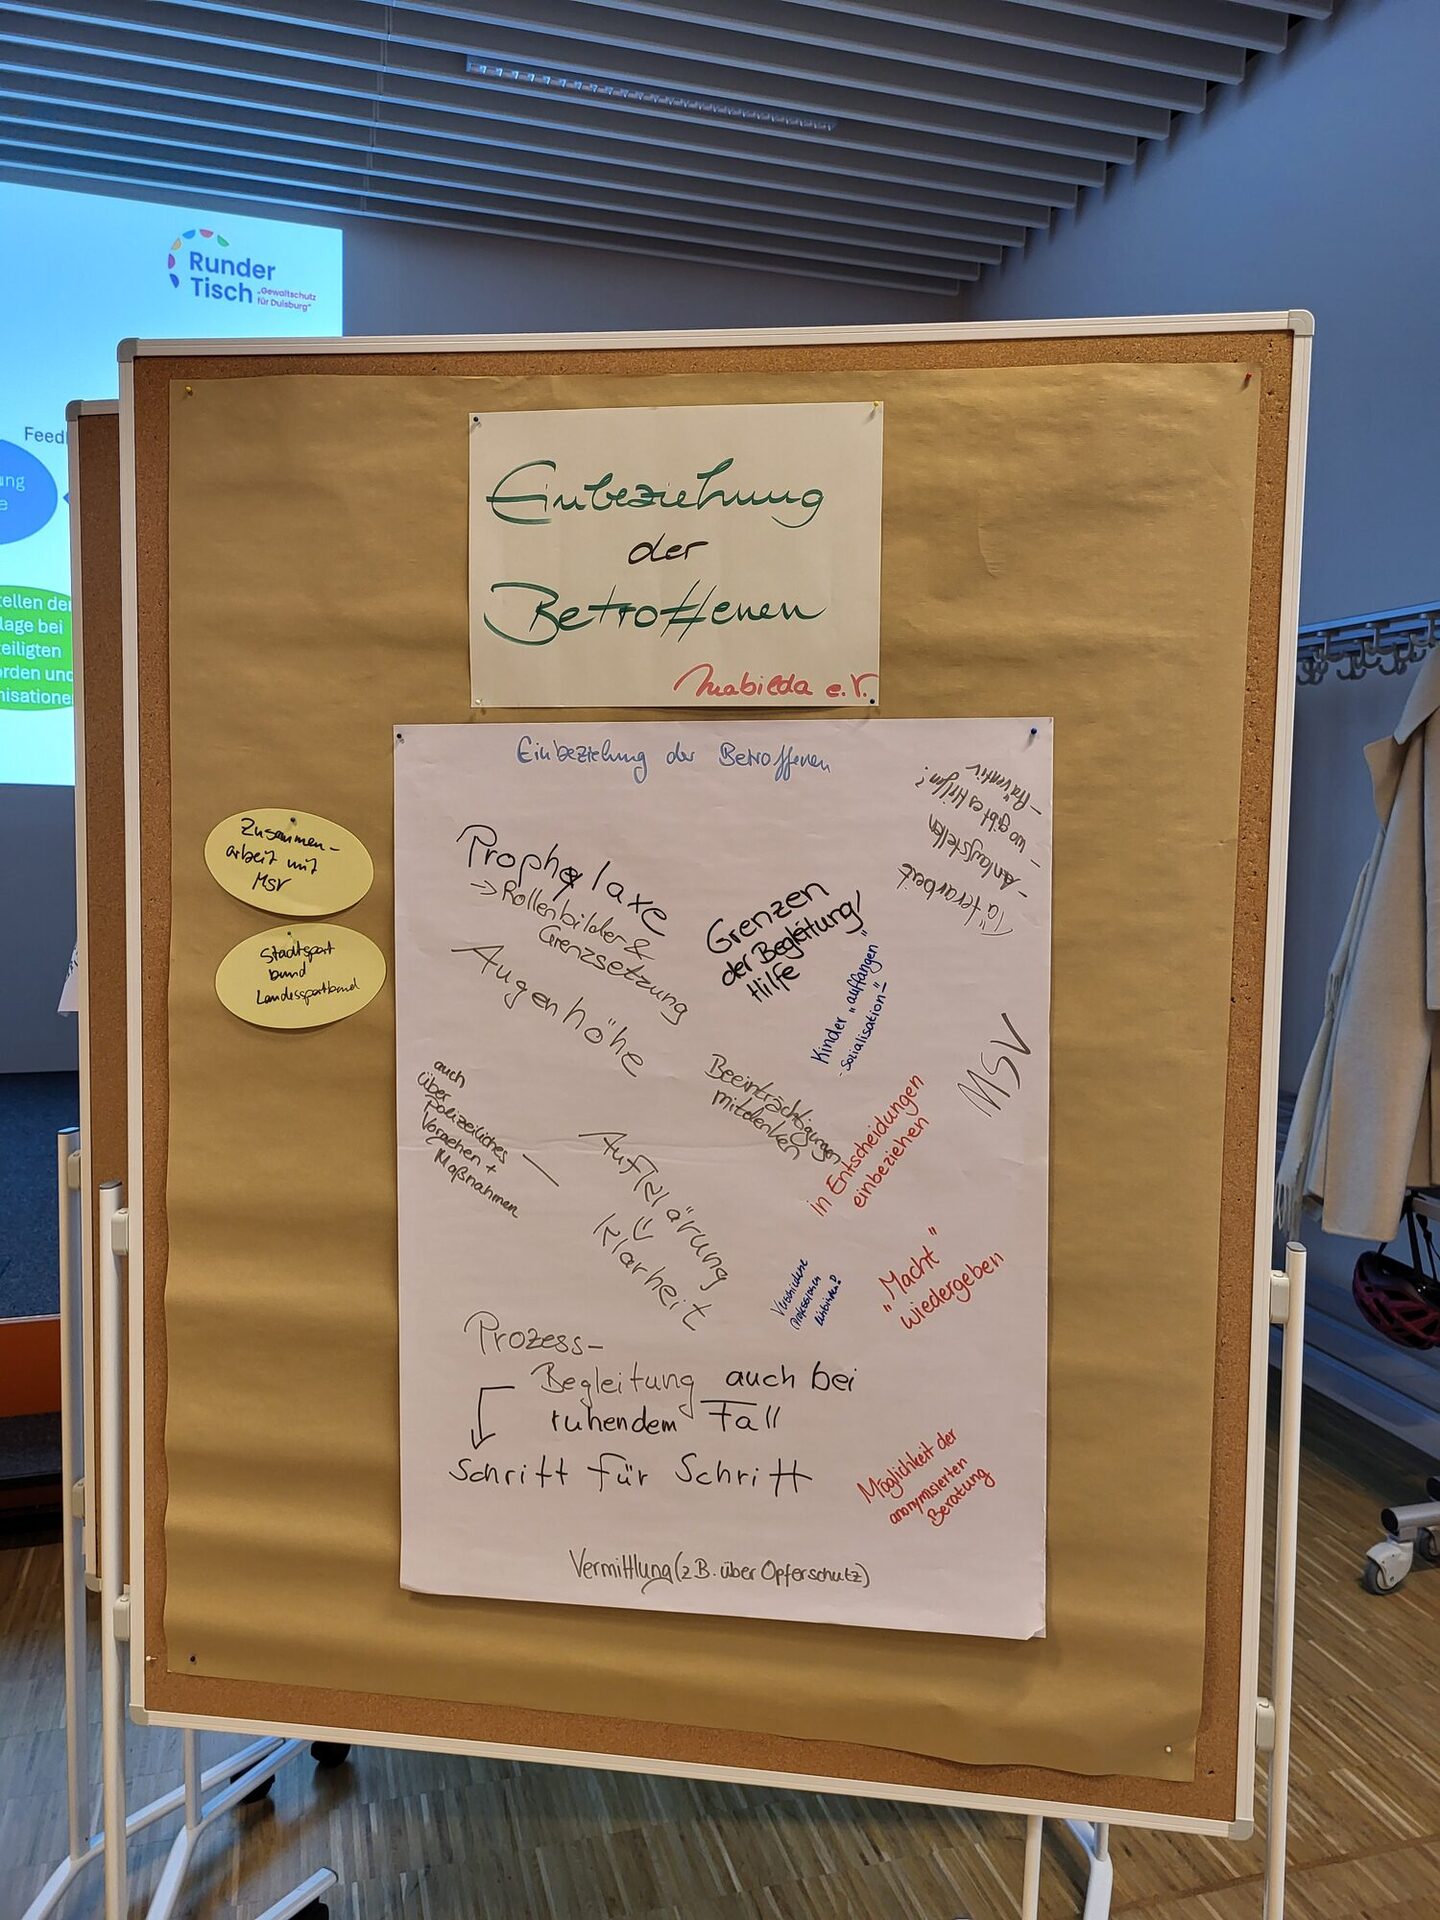 Runder
Tisch
„Gewaltschutz
für Duisburg"
Feed
ung
e
tellen der
lage bei
teiligten
orden und
nisatione
Einbeziehung
der
Betroffenen
Mabilda e.V.
Zusammen-
arbeit mit
MSV
Stadtsport
bund
Landessportbund
Einbeziehung der Betroffenen
Prophylaxe
-> Rollenbilder &
Grenzsetzung
Augenhöhe
Grenzen
der Begleitung/
Hilfe
Täterarbeit
- Anlaufstellen
- wo gibt es Hilfen?
- Präventiv
Kinder „auffangen"
- Sozialisation -
MSV
auch
über
polizeiliches
Vorgehen +
Maßnahmen
Beeinträchtigungen
mitdenken
in Entscheidungen
einbeziehen
Aufklärung
=
Klarheit
Verschiedene
Professionen
einbinden!
„Macht"
wiedergeben
Prozess-
Begleitung auch bei
ruhendem Fall
Schritt für Schritt
Möglichkeit der
anonymisierten
Beratung
Vermittlung (z.B. über Opferschutz)